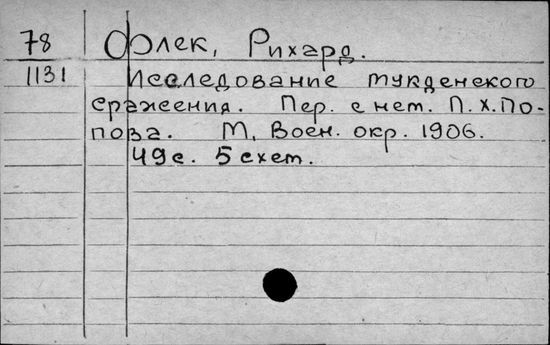 78 Флек, Рихард.
1131 Исследование мукденского
сражения. Пер. с нем. П.Х.По-
пова. М, Воен. окр. 1906.
49с. 5 схем.